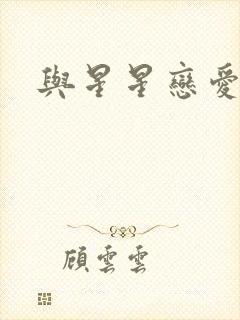 與星星戀愛
顧雲雲